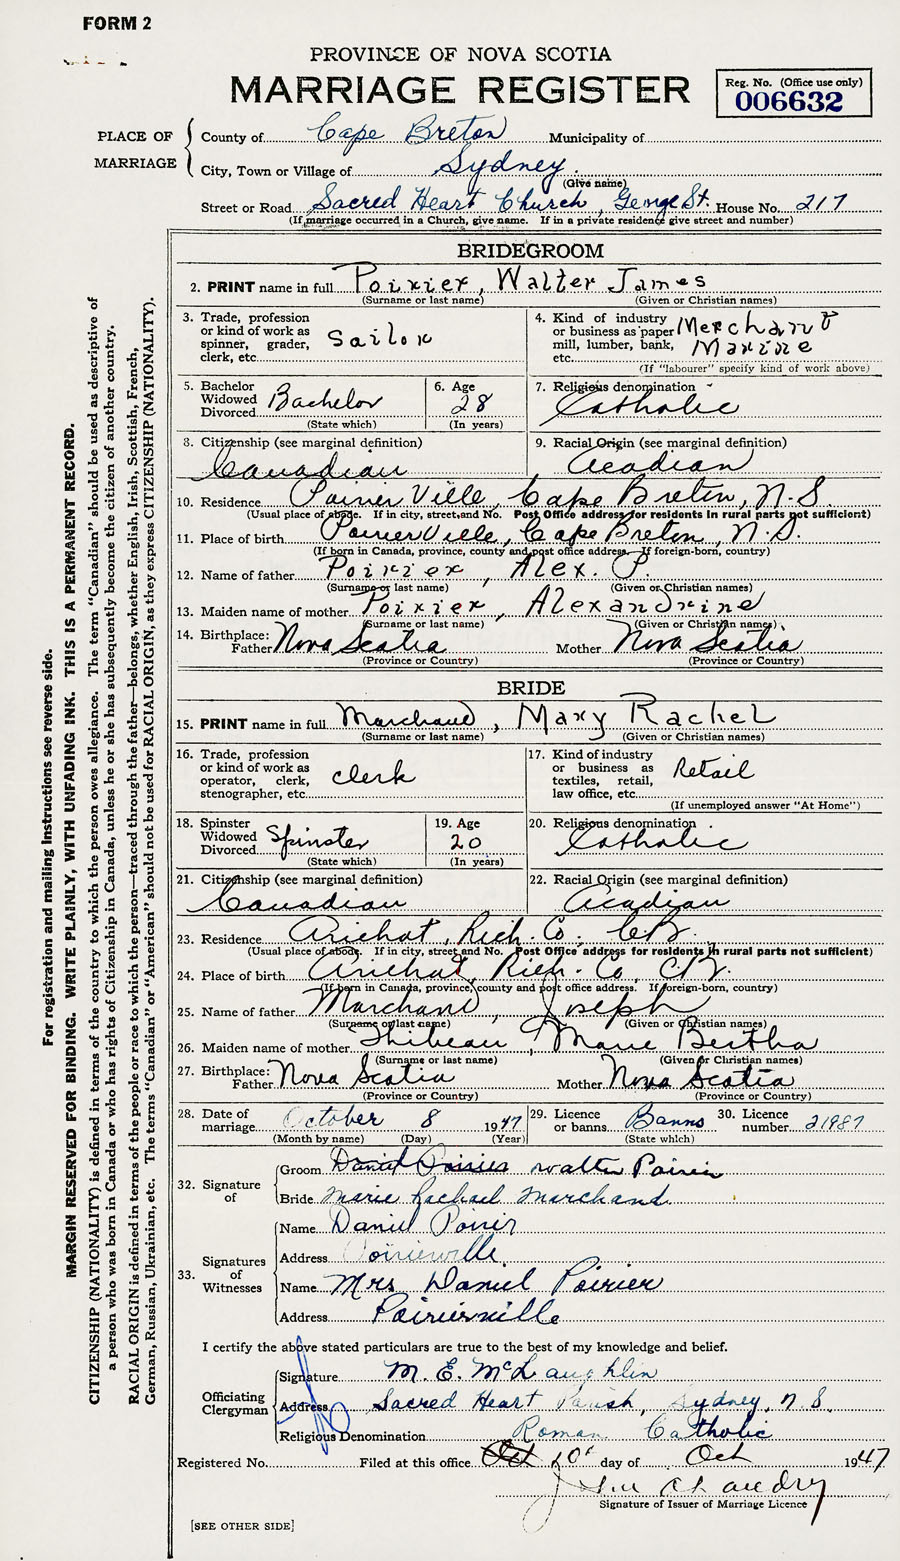 FORM 2
PROVINCE OF NOVA SCOTIA
MARRIAGE REGISTER
Reg. No. (Office use only)
006632
PLACE OF MARRIAGE
County of Cape Breton Municipality of
City, Town or Village of Sydney.
(Give name)
Street or Road Sacred Heart Church, George St. House No. 217
(If marriage occurred in a Church, give name. If in a private residence give street and number)
BRIDEGROOM
2. PRINT name in full Poirier, Walter James
(Surname or last name) (Given or Christian names)
3. Trade, profession or kind of work as spinner, grader, clerk, etc. Sailor
4. Kind of industry or business as paper mill, lumber, bank, etc. Merchant Marine
(If "labourer" specify kind of work above)
5. Bachelor Widowed Divorced Bachelor
(State which)
6. Age 28
(In years)
7. Religious denomination Catholic
8. Citizenship (see marginal definition) Canadian
9. Racial Origin (see marginal definition) Acadian
10. Residence Poirier Ville, Cape Breton, N.S
(Usual place of abode. If in city, street and No. Post Office address for residents in rural parts not sufficient)
11. Place of birth Poirier Ville, Cape Breton, N.S.
(If born in Canada, province, county and post office address. If foreign-born, country)
12. Name of father Poirier, Alex. P.
(Surname or last name) (Given or Christian names)
13. Maiden name of mother Poirier, Alexandrine
(Surname or last name) (Given or Christian names)
14. Birthplace: Father Nova Scotia Mother Nova Scotia
(Province or Country) (Province or Country)
BRIDE
15. PRINT name in full Marchand, Mary Rachel
(Surname or last name) (Given or Christian names)
16. Trade, profession or kind of work as operator, clerk, stenographer, etc. clerk
17. Kind of industry or business as textiles, retail, law office, etc. Retail
(If unemployed answer "At Home")
18. Spinster Widowed Divorced Spinster
(State which)
19. Age 20
(In years)
20. Religious denomination Catholic
21. Citizenship (see marginal definition) Canadian
22. Racial Origin (see marginal definition) Acadian
23. Residence Arichat, Rich. Co. C.B.
(Usual place of abode. If in city, street and No. Post Office address for residents in rural parts not sufficient)
24. Place of birth Arichat, Rich. Co, C.B.
(If born in Canada, province, county and post office address. If foreign-born, country)
25. Name of father Marchand, Joseph
(Surname or last name) (Given or Christian names)
26. Maiden name of mother Thibeau, Marie Bertha
(Surname or last name) (Given or Christian names)
27. Birthplace: Father Nova Scotia Mother Nova Scotia
(Province or Country) (Province or Country)
28. Date of marriage October 8 1947
(Month by name) (Day) (Year)
29. Licence or banns Banns
(State which)
30. Licence number 21987
32. Signature of
Groom Daniel Poirier Walter Poirier
Bride Marie Rachael Marchand
33. Signatures of Witnesses
Name Daniel Poirier
Address Poirierville
Name Mrs Daniel Poirier
Address Poirierville
I certify the above stated particulars are true to the best of my knowledge and belief.
Officiating Clergyman
Signature M. E. McLaughlin
Address Sacred Heart Parish, Sydney, N.S.
Religious Denomination Roman Catholic
Registered No. Filed at this office Oct 10 day of Oct 1947
Signature of Issuer of Marriage Licence
[SEE OTHER SIDE]
For registration and mailing instructions see reverse side.
MARGIN RESERVED FOR BINDING. WRITE PLAINLY, WITH UNFADING INK. THIS IS A PERMANENT RECORD.
CITIZENSHIP (NATIONALITY) is defined in terms of the country to which the person owes allegiance. The term "Canadian" should be used as descriptive of
a person who was born in Canada or who has rights of Citizenship in Canada, unless he or she has subsequently become the citizen of another country.
RACIAL ORIGIN is defined in terms of the people or race to which the person—traced through the father—belongs, whether English, Irish, Scottish, French,
German, Russian, Ukrainian, etc. The terms "Canadian" or "American" should not be used for RACIAL ORIGIN, as they express CITIZENSHIP (NATIONALITY).